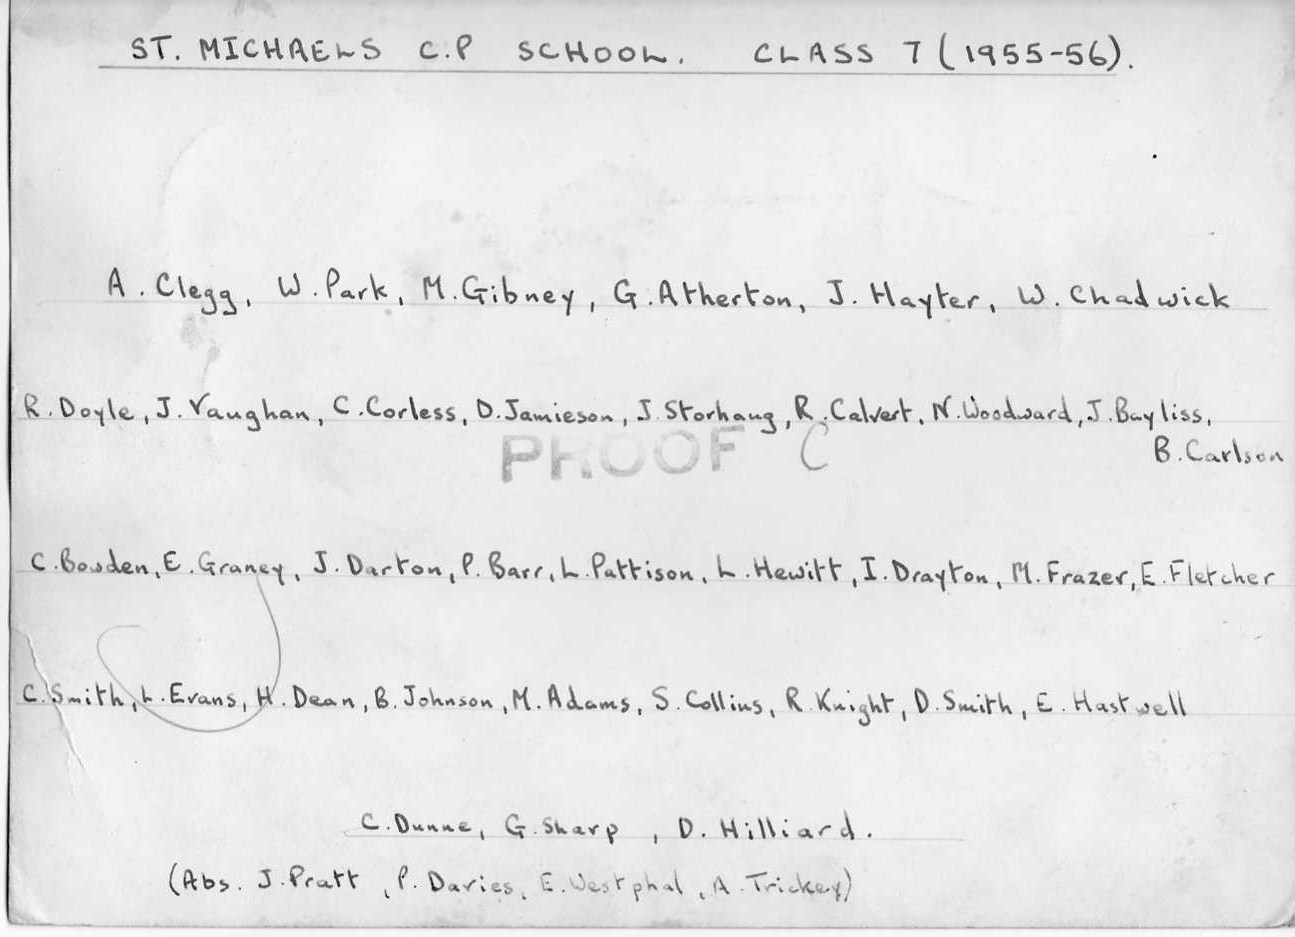 ST. MICHAELS C.P SCHOOL. CLASS 7 (1955-56).
A. Clegg, W. Park, M. Gibney, G. Atherton, J. Hayter, W. Chadwick
R. Doyle, J. Vaughan, C. Corless, D. Jamieson, J. Storhaug, R. Calvert, N. Woodward, J. Bayliss,
B. Carlson
PROOF C
C. Bowden, E. Graney, J. Darton, P. Barr, L. Pattison, L. Hewitt, I. Drayton, M. Frazer, E. Fletcher
C. Smith, L. Evans, H. Dean, B. Johnson, M. Adams, S. Collins, R. Knight, D. Smith, E. Hastwell
C. Dunne, G. Sharp, D. Hilliard.
(Abs. J. Pratt, P. Davies, E. Westphal, A. Trickey)